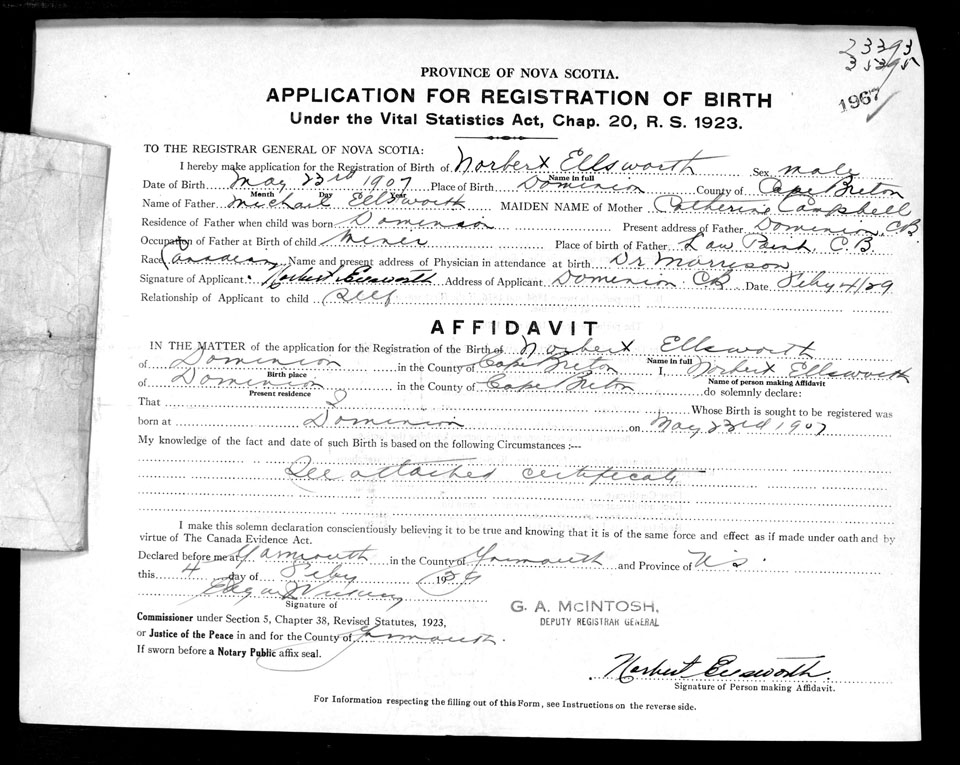 23393
35395
1967
PROVINCE OF NOVA SCOTIA.
APPLICATION FOR REGISTRATION OF BIRTH
Under the Vital Statistics Act, Chap. 20, R. S. 1923.
TO THE REGISTRAR GENERAL OF NOVA SCOTIA:
I hereby make application for the Registration of Birth of Norbert Ellsworth Sex male
Name in full
Date of Birth May 23rd 1907 Place of Birth Dominion County of Cape Breton
Month Day Year
Name of Father Michael Ellsworth MAIDEN NAME of Mother Catherine Campbell
Residence of Father when child was born Dominion Present address of Father Dominion, C.B.
Occupation of Father at Birth of child Miner Place of birth of Father Low Point, C.B.
Race Canadian Name and present address of Physician in attendance at birth Dr Morrison
Signature of Applicant Norbert Ellsworth Address of Applicant Dominion CB Date Feby 4/29
Relationship of Applicant to child Self
AFFIDAVIT
IN THE MATTER of the application for the Registration of the Birth of Norbert Ellsworth
Name in full
of Dominion in the County of Cape Breton I, Norbert Ellsworth
Birth place Name of person making Affidavit
of Dominion in the County of Cape Breton do solemnly declare:
Present residence
That I Whose Birth is sought to be registered was
born at Dominion on May 23rd 1907
My knowledge of the fact and date of such Birth is based on the following Circumstances :--
See attached certificate
I make this solemn declaration conscientiously believing it to be true and knowing that it is of the same force and effect as if made under oath and by
virtue of The Canada Evidence Act.
Declared before me at Yarmouth in the County of Yarmouth and Province of N.S.
this 4 day of Feby 1929
Edgar
Signature of
G. A. McINTOSH,
DEPUTY REGISTRAR GENERAL
Commissioner under Section 5, Chapter 38, Revised Statutes, 1923,
or Justice of the Peace in and for the County of Yarmouth.
If sworn before a Notary Public affix seal.
Norbert Ellsworth
Signature of Person making Affidavit.
For Information respecting the filling out of this Form, see Instructions on the reverse side.